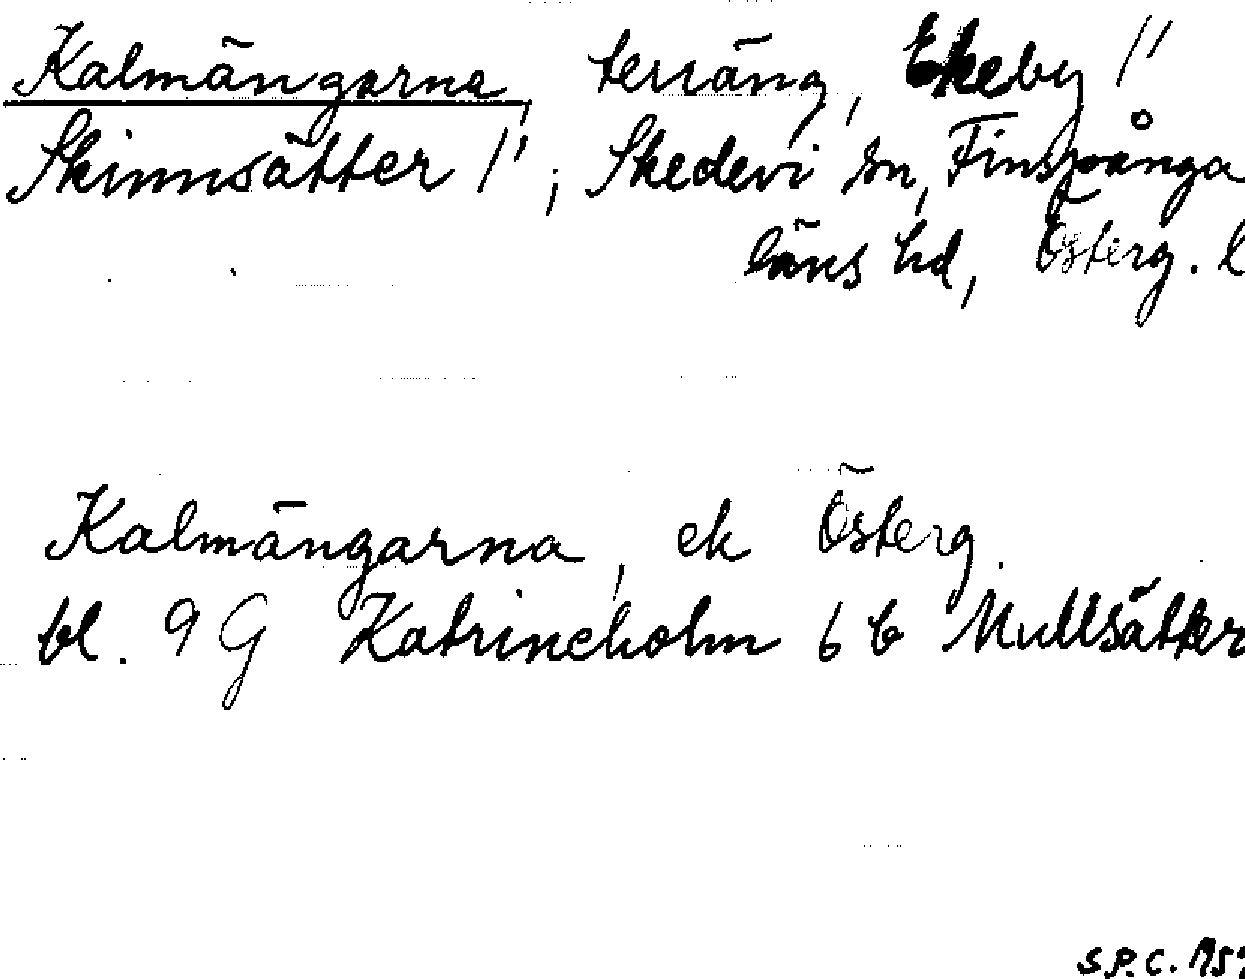 Kalmängarna, terräng, Ekeby 1/1
Skinnsätter 1/1, Skedevi sn, Finspånga
läns hd, Österg. l
Kalmängarna, ek Österg.
bl. 9 G Katrineholm 6 b Mullsätter
S.P.C.